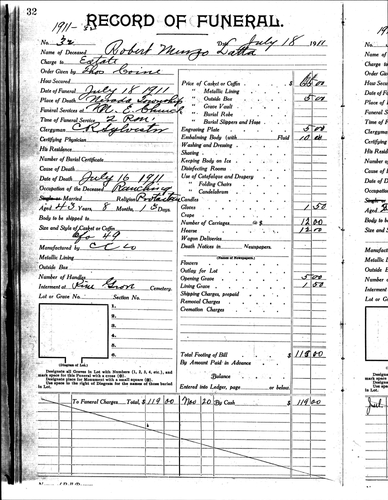 32
1911-32
RECORD OF FUNERAL.
No. 32 Date July 18 1911
Name of Deceased Robert Mungo Latta
Charge to Estate
Order Given by Thos
How Secured
Date of Funeral July 18 1911
Place of Death Nevada Township
Funeral Services at M. E. Church
Time of Funeral Service 2 P.m.
Clergyman C R Sylvester
Certifying Physician
His Residence
Number of Burial Certificate
Cause of Death
Date of Death July 16 1911
Occupation of the Deceased Ranching
Single or Married Religion Protestant
Aged 43 Years 8 Months, 1 Days
Body to be shipped to
Size and Style of Casket or Coffin
49
Manufactured by
Metallic Lining
Outside Box
Number of Handles
Interment at Pine Grove Cemetery.
Lot or Grave No. Section No.
1.
2.
3.
4.
5.
(Diagram of Lot.)
Designate all Graves in Lot with Numbers (1, 2, 3, 4, etc.), and
mark space for this Funeral with a cross
Designate place for Monument with a small square
Use space to the right of Diagram for the names of those buried
in Lot.
Price of Casket or Coffin
" Metallic Lining
" Outside Box 5 00
" Grave Vault
" Burial Robe
" Burial Slippers and Hose
Engraving Plate 5 00
Embalming Body (with Fluid 10 00
Washing and Dressing
Shaving
Keeping Body on Ice
Disinfecting Rooms
Use of Catafalque and Drapery
" Folding Chairs
" Candelabrum
Candles
Gloves 1 50
Crape
Number of Carriages 12 00
Hearse 12 00
Wagon Deliveries
Death Notices in Newspapers.
(Names of Newspapers.)
Flowers
Outlay for Lot
Opening Grave 5 00
Lining Grave 1 50
Shipping Charges, prepaid
Removal Charges
Cremation Charges
Total Footing of Bill
By Amount Paid in Advance
Balance
Entered into Ledger, page or below.
To Funeral Charges Total, $ 119 00 Nov 20 By Cash $ 119 00